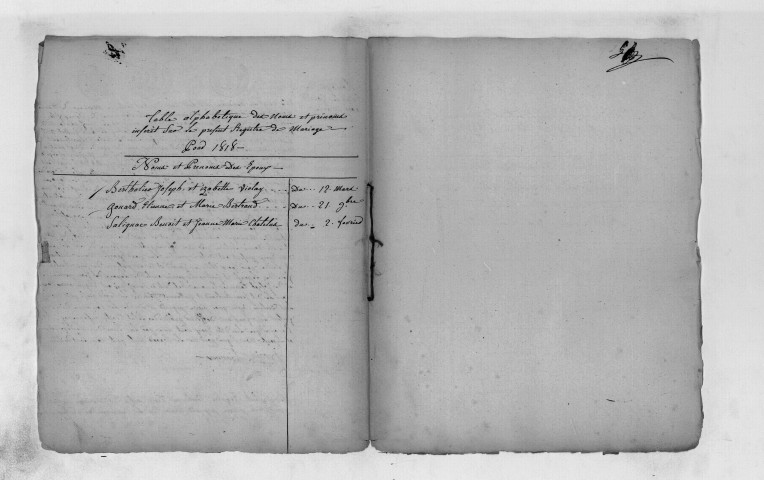 Table alphabetique des Noms et prénoms
inserit Sur le present Registre de Mariage
1818
Noms et Prenoms Des Epoux
Berthelier Joseph et izabette violay Du 12 mars
gonard et Marie Bertrand Du 21 9bre
Salignac Benoit et Jeanne Marie Chatelus du 2 fevrier